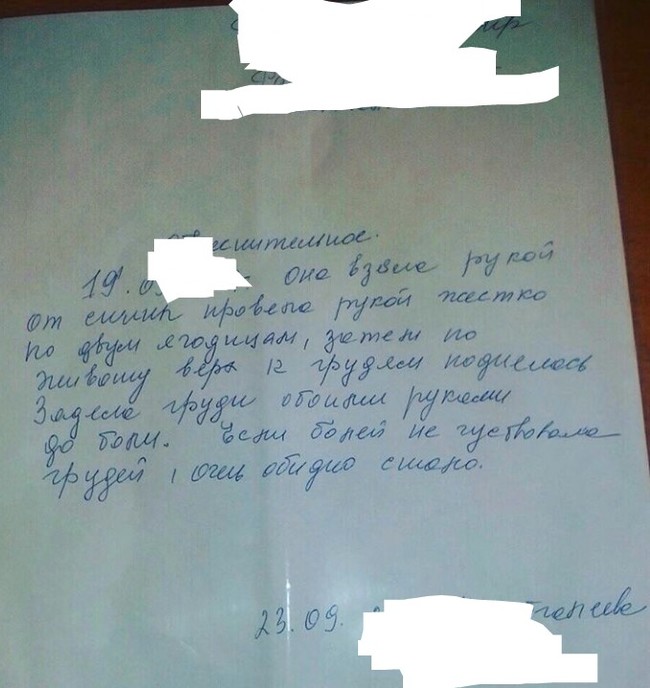 19.09 она взяла рукой
от спины провела рукой жестко
по двум ягодицам, затем по
животу верх к грудям поднелась
Задела груди обоими руками
до боли. Если болей не чуствовала
грудей, очень обидно стало.
23.09.